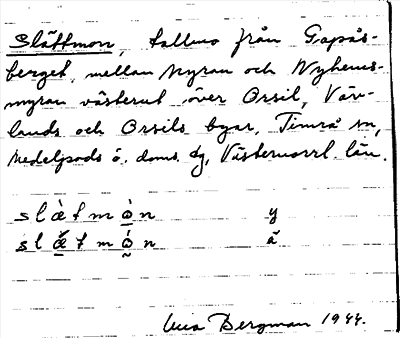 Slättmon, tallmo från Gapås-
berget, mellan Myran och Nyhems-
myran västerut över Orsil, Väv-
lands och Orsils byar, Timrå sn,
Medelpads ö. doms. dg, Västernorrl. län.
slæ̀tmò̠n y
slæ̠̆tmó̰n ä
Bergman 1944.